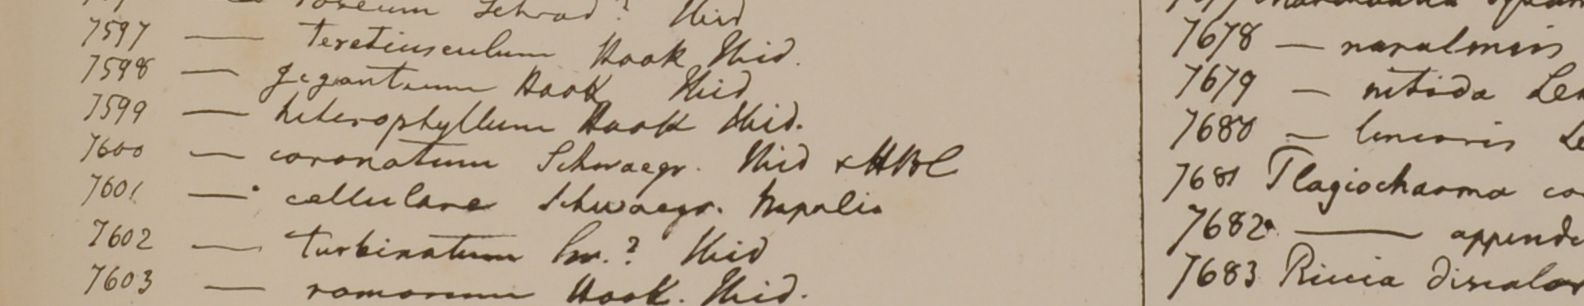 roseum Schrad? Ibid
7597 — teretiusculum Hook Ibid.
7598 — giganteum Hook Ibid
7599 — heterophyllum Hook Ibid.
7600 — coronatum Schwaegr. Ibid & HBC
7601 — cellulare Schwaegr. Napalia
7602 — turbinatum Sw.? Ibid
7603 — ramosum Hook. Ibid.
7678 —
7679 — nitida Le
7680 — linearis Le
7681 Plagiochasma co
7682 — appende
7683 Riccia discolor